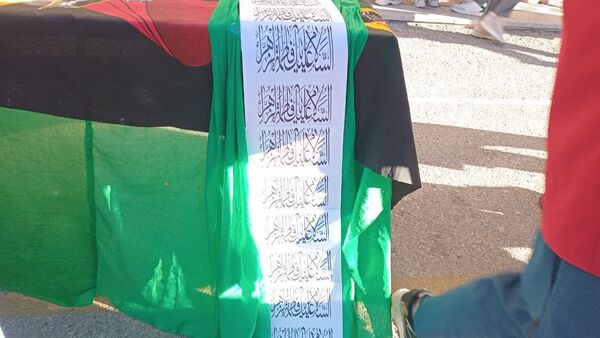 السلام عليك يا فاطمة الزهراء
السلام عليك يا فاطمة الزهراء
السلام عليك يا فاطمة الزهراء
السلام عليك يا فاطمة الزهراء
السلام عليك يا فاطمة الزهراء
السلام عليك يا فاطمة الزهراء
السلام عليك يا فاطمة الزهراء
السلام عليك يا فاطمة الزهراء